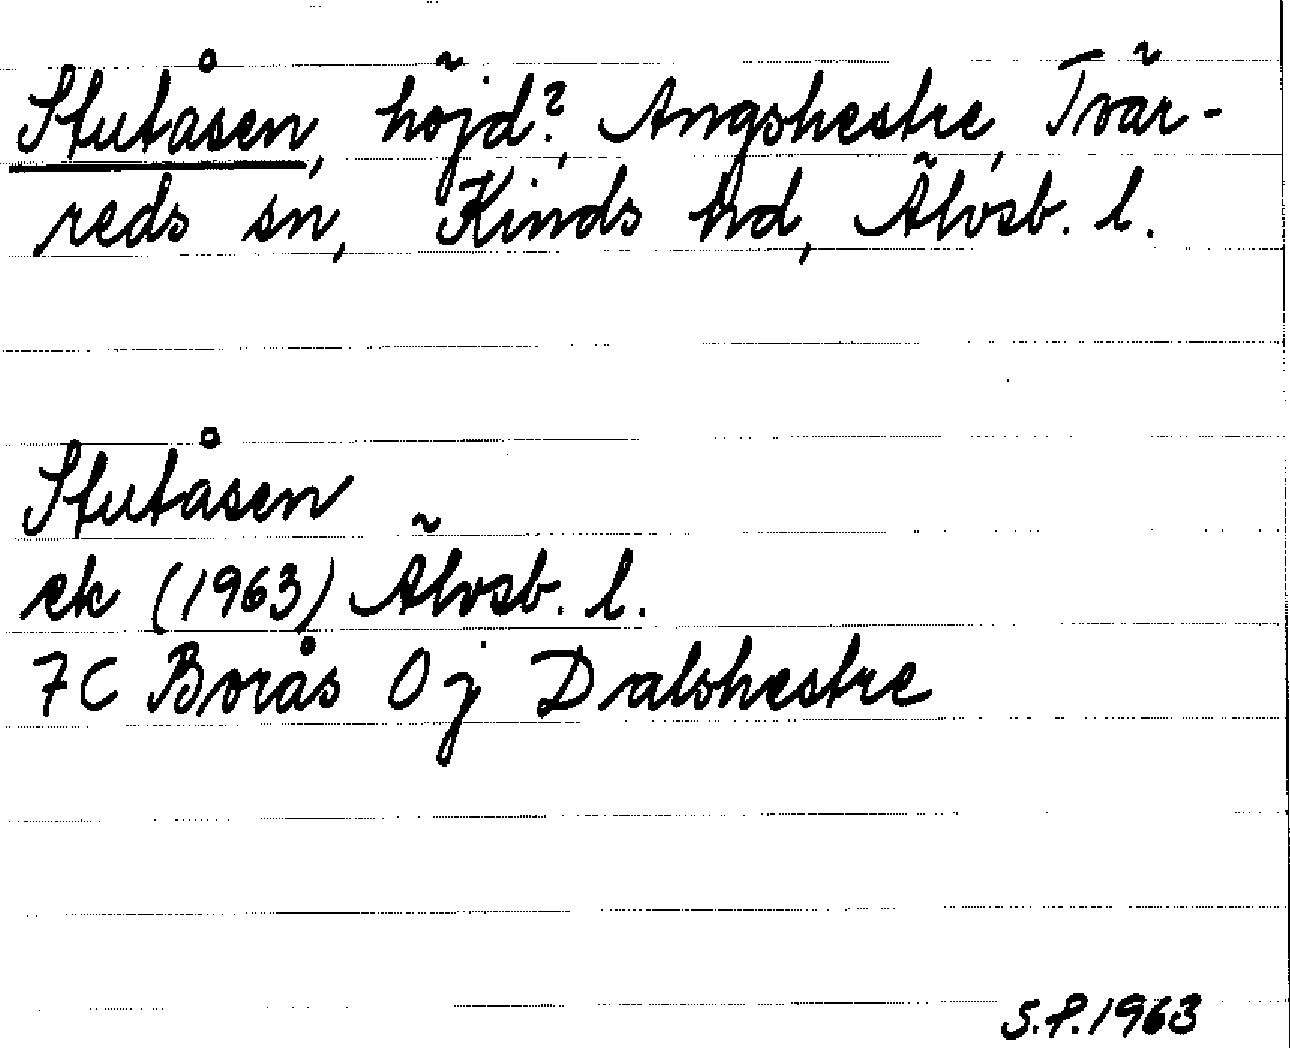 Stutåsen, höjd?, Angshestre, Tvär-
reds sn, Kinds hd, Älvsb. l.
Stutåsen
ek (1963) Älvsb. l.
7C Borås Oj Dalshestre
S.P. 1963